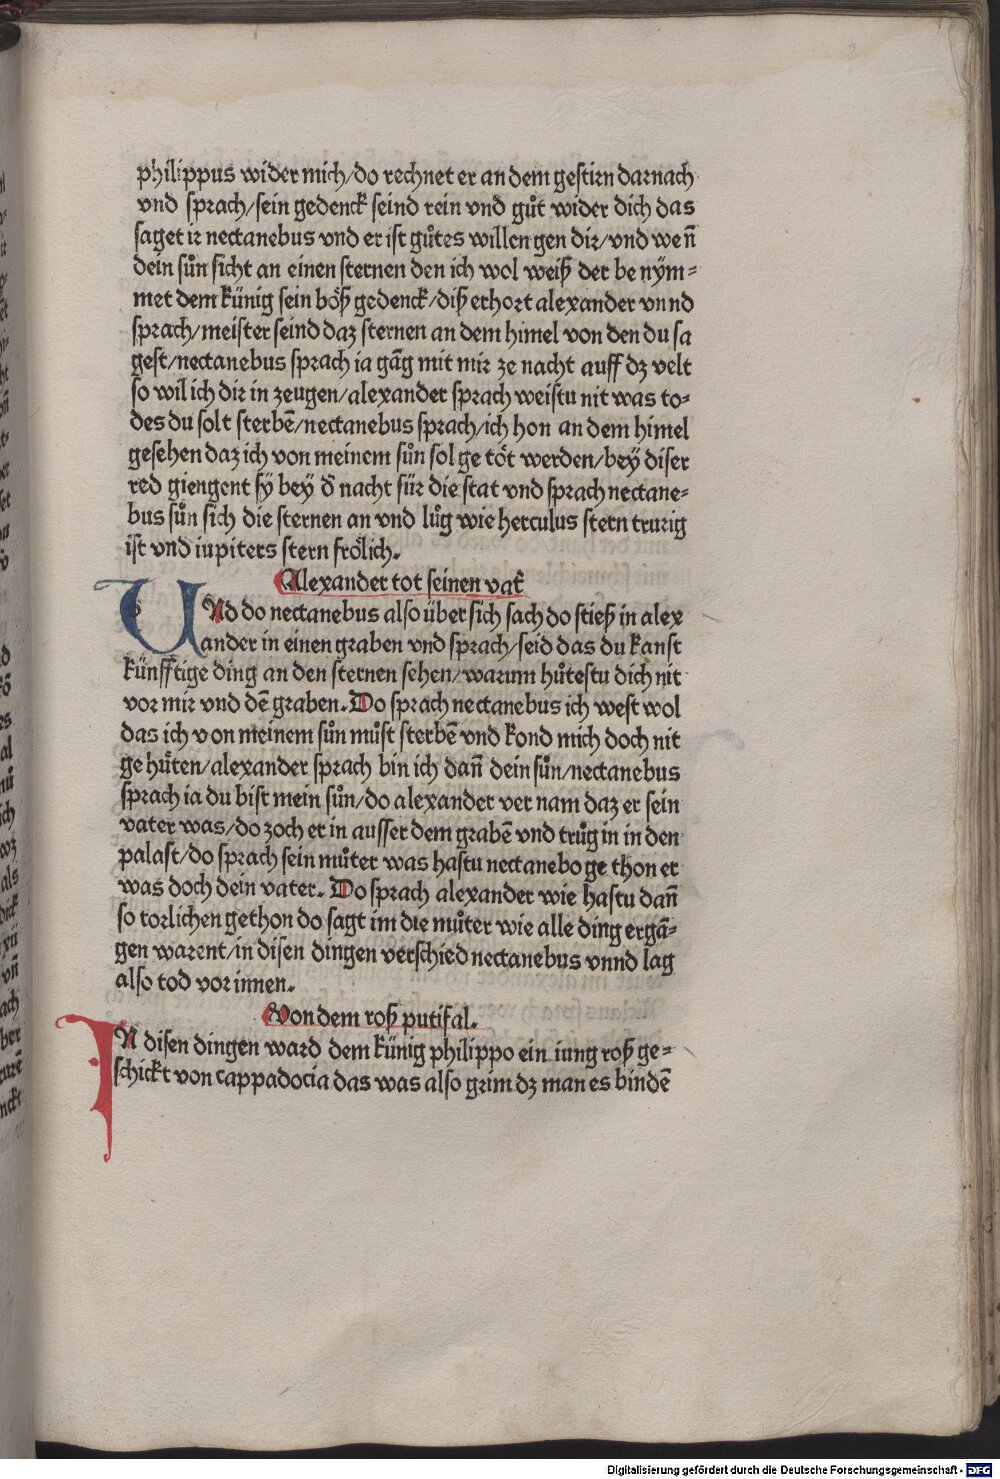 philippus wider mich/do rechnet er an dem gestirn darnach
vnd sprach/sein gedenck seind rein vnd gůt wider dich das
saget ir nectanebus vnd er ist gůtes willen gen dir/vnd wen̄
dein sůn sicht an einen sternen den ich wol weiß der be nÿm⸗
met dem künig sein böß gedenck/diß erhort alexander vnnd
sprach/meister seind daz sternen an dem himel von den du sa
gest/nectanebus sprach ia gāg mit mir ze nacht auff dz velt
so wil ich dir in zeugen/alexander sprach weistu nit was to⸗
des du solt sterbē/nectanebus sprach/ich hon an dem himel
gesehen daz ich von meinem sůn sol ge töt werden/beÿ diser
red giengent sÿ beÿ d̄ nacht für die stat vnd sprach nectane⸗
bus sůn sich die sternen an vnd lůg wie herculus stern trurig
ist vnd iupiters stern frölich.
Alexander tot seinen vat̄
UNd do nectanebus also über sich sach do stieß in alex
ander in einen graben vnd sprach/seid das du kanst
künfftige ding an den sternen sehen/warum hůtestu dich nit
vor mir vnd dē graben. Do sprach nectanebus ich west wol
das ich von meinem sůn můst sterbē vnd kond mich doch nit
ge hůten/alexander sprach bin ich dan̄ dein sůn/nectanebus
sprach ia du bist mein sůn/do alexander ver nam daz er sein
vater was/do zoch er in ausser dem grabē vnd trůg in in den
palast/do sprach sein můter was hastu nectanebo ge thon er
was doch dein vater. Do sprach alexander wie hastu dan̄
so torlichen gethon do sagt im die můter wie alle ding ergā⸗
gen warent/in disen dingen verschied nectanebus vnnd lag
also tod vor innen.
Von dem roß putifal.
IN disen dingen ward dem künig philippo ein iung roß ge⸗
schickt von cappadocia das was also grim dz man es bindē
Digitalisierung gefördert durch die Deutsche Forschungsgemeinschaft - DFG